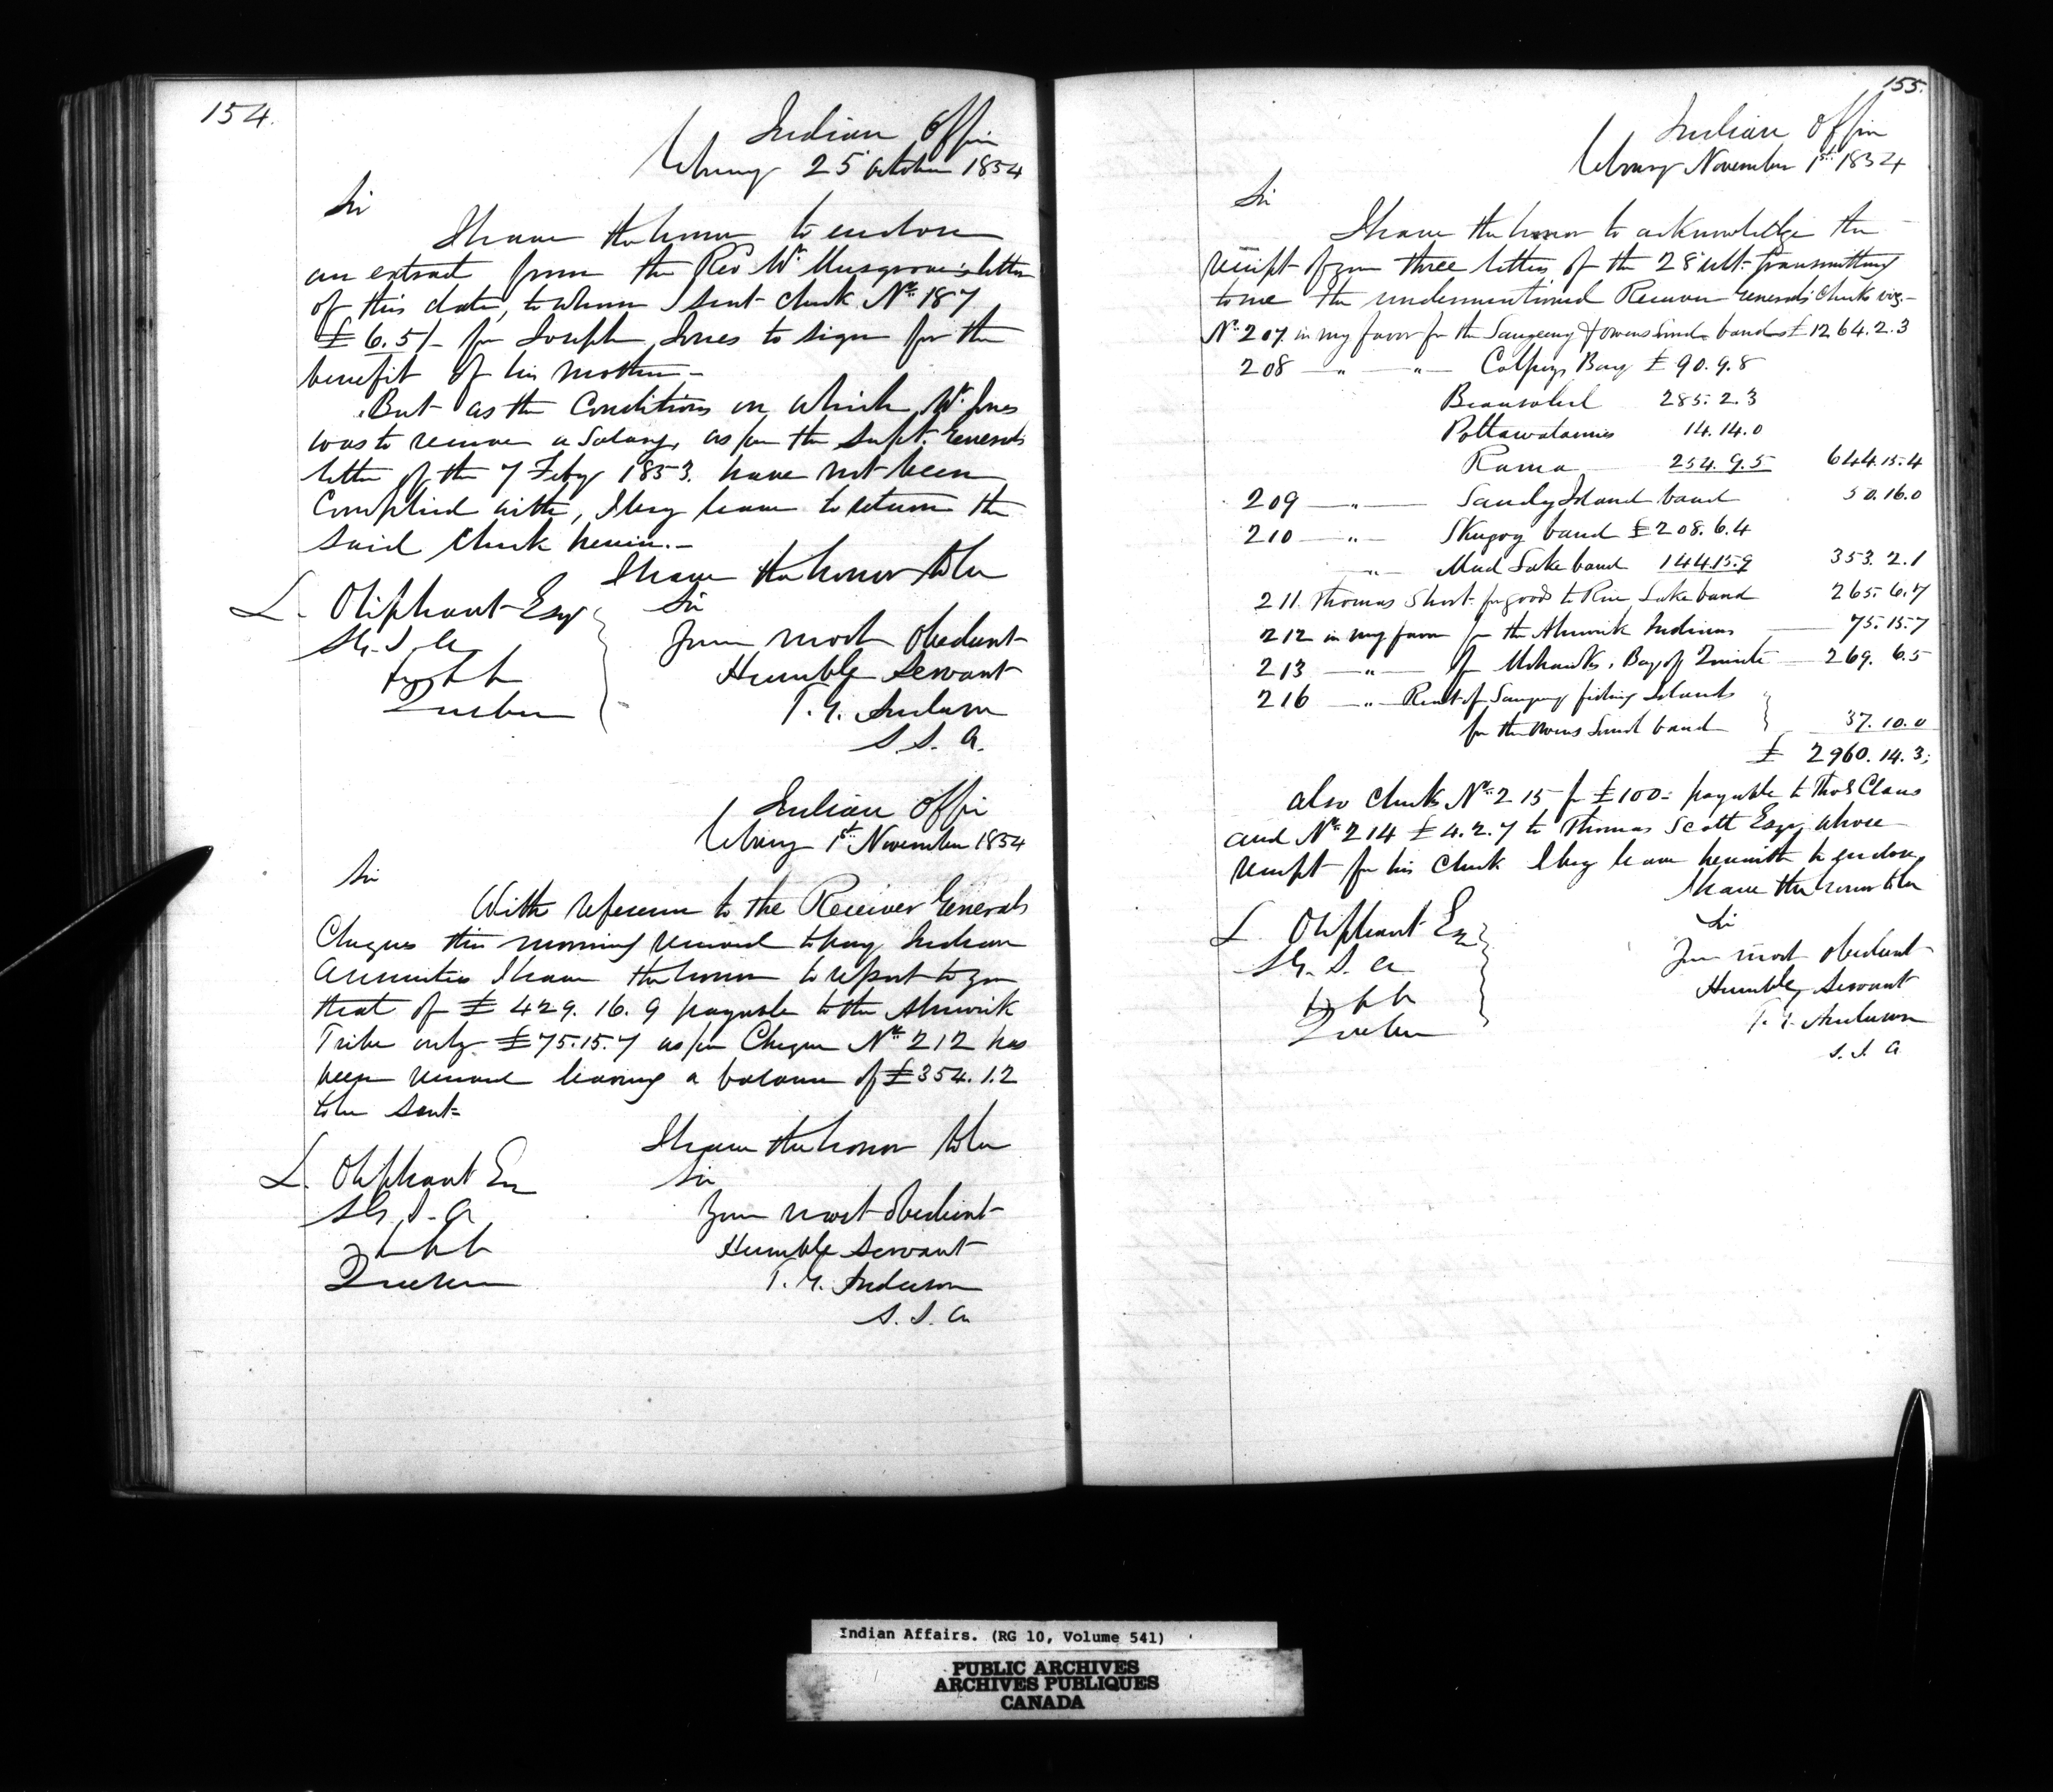 154.
Indian Office
Cobourg 25 October 1854
Sir
I have the honor to enclose
an extract from the Rev Mr. Musgrove's letter
of this date, to whom I sent check No. 187
£6.5/- for Joseph Jones to sign for the
benefit of his mother -
But as the Conditions on which Mr. Jones
was to receive a Salary, as per the Supt. Generals
letter of the 7 Feby 1853. have not been
Complied with, I beg leave to return the
said Check herein. -
I have the honor to be
L. Oliphant Esqr
Sir
S.G.I.A
Your most Obedient
Humble Servant
Quebec
T. G. Anderson
S. I. A.
Indian Office
Cobourg 1st. November 1854
Sir
With reference to the Receiver Generals
Cheques this morning received to pay Indian
Annuities I have the honor to report to you
that of £429. 16. 9 payable to the Alnwick
Tribe only £75.15.7 as per Cheque No. 212 has
been received leaving a balance of £354. 1. 2
to be sent =
I have the honor to be
L. Oliphant Esq
Sir
S.G.I.A
Your most obedient
Humble Servant
Quebec
T. G. Anderson
S. I. A
155.
Indian Office
Cobourg November 1st. 1854
Sir
I have the honor to acknowledge the
receipt of your three letters of the 28 ult. transmitting
to me the undermentioned Receiver Generals Checks viz -
No. 207 in my favor for the Saugeeng & Owens Sound bands £1264. 2. 3
208 — " — " — Colpoys Bay £90. 9. 8
Beausoleil 285. 2. 3
Pottawatamies 14. 14. 0
Rama 254. 9. 5 644. 15. 4
209 — " — Sandy Island band 50. 16. 0
210 — " — Skugog band £208. 6. 4
" — Mud Lake band 144.15.9 353. 2. 1
211 Thomas Short for goods to Rice Lake band 265. 6. 7
212 in my favor for the Alnwick Indians 75. 15. 7
213 — " — for Mohawks, Bay of Quinté 269. 6. 5
216 — " — Rent of Saugeeng fishing Islands
for the Owens Sound band 37. 10. 0
£ 2960. 14. 3;
also Checks No. 215 for £100 = payable to Thos Claus
and No. 214 £4. 2. 7 to Thomas Scott Esqr, whose
receipt for his Check I beg leave herewith to enclose,
I have the honor to be
L. Oliphant Esq
Sir
S.G.I.A
Your most obedient
Humble Servant
Quebec
T. G. Anderson
S. I. A
Indian Affairs. (RG 10, Volume 541)
PUBLIC ARCHIVES
ARCHIVES PUBLIQUES
CANADA